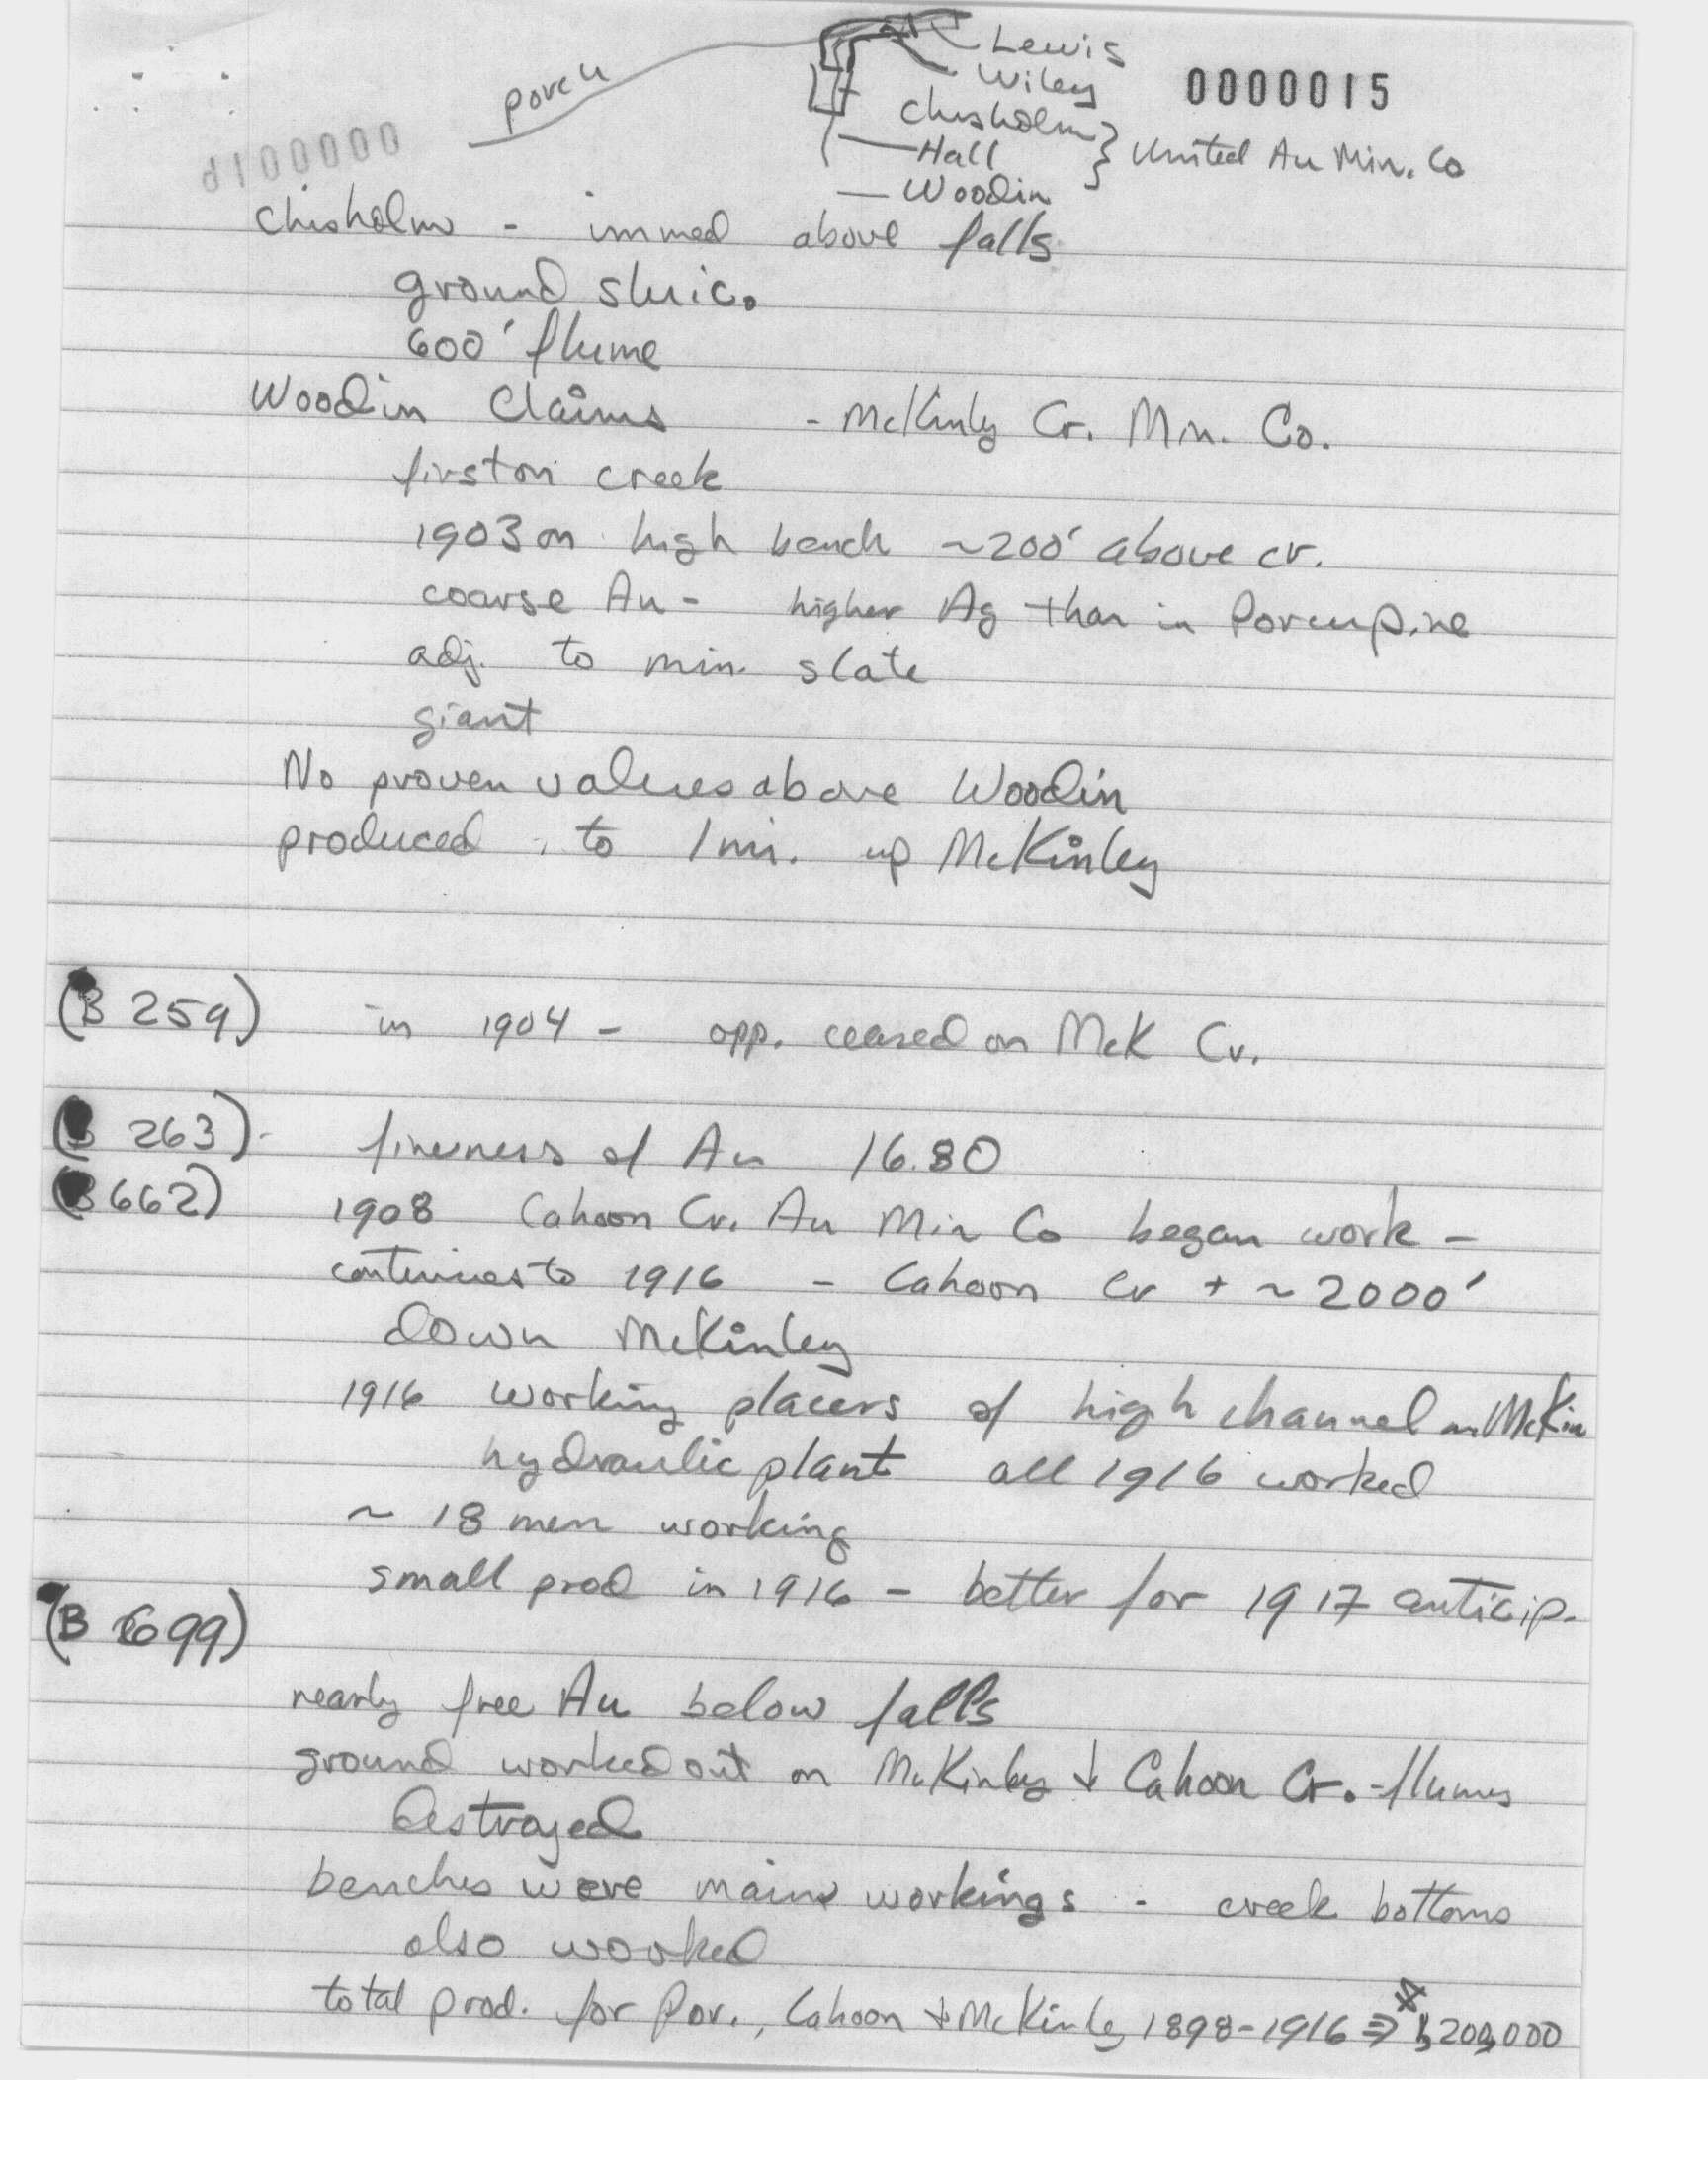 Lewis
Wiley
0000015
Chisholm
Hall } United Au Min. Co
Woodin
Chisholm - immed above falls
ground sluic.
600' flume
Woodin Claims - McKinly Cr. Min. Co.
first on creek
1903 on high bench ~200' above cr.
coarse Au - higher Ag than in Porcupine
adj. to min. slate
giant
No proven values above Woodin
produced to 1 mi. up McKinley
(B 259) in 1904 - opp. ceased on McK Cr.
(B 263) fineness of Au 16.80
(B 662) 1908 Cahoon Cr. Au Min Co began work -
continues to 1916 - Cahoon Cr + ~2000'
down McKinley
1916 working placers of high channel on McKin
hydraulic plant all 1916 worked
~ 18 men working
small prod in 1916 - better for 1917 anticip.
(B 699)
nearly free Au below falls
ground worked out on McKinley + Cahoon Cr. - flumes
destroyed
benches were main workings - creek bottoms
also worked
total prod. for Por., Cahoon + McKinley 1898-1916 ⇒ $1,200,000